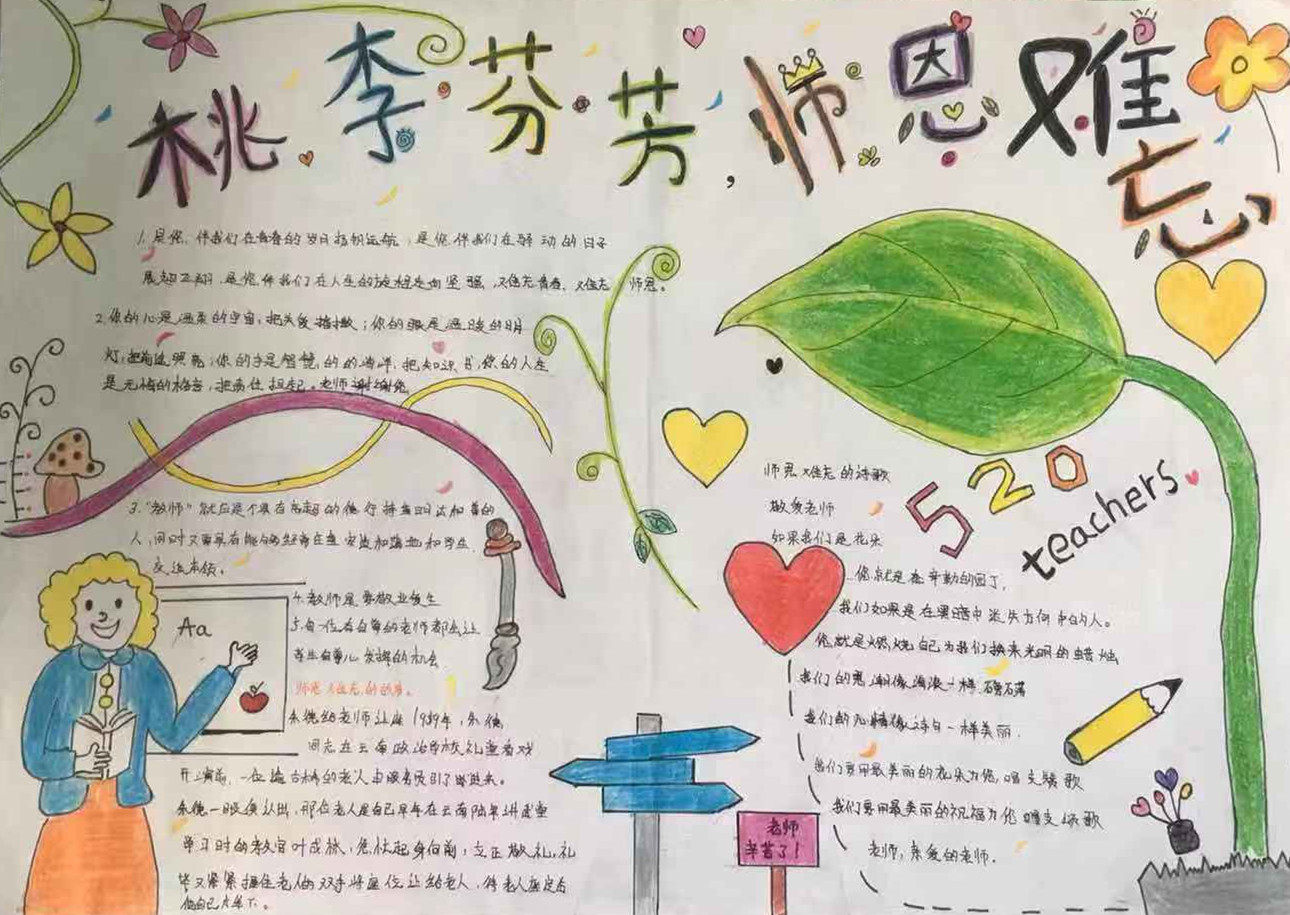 桃李芬芳,师恩难忘
1.是你,伴我们在青春的岁月扬帆远航,是你伴我们在舞动的日子
展翅飞翔,是您伴我们在人生的旅程走向坚强,难忘青春,难忘师恩。
2.你的心是温柔的宇宙,把关爱播撒;你的眼是温暖的明
灯,把前途照亮;你的手是智慧的的海洋,把知识 ,你的人生
是无悔的格言,把责任担起。老师谢谢您
3."教师"就应是个具有高超的德行
人,同时又要具有能够经常在
交往本领。
4.教师是要敬业爱生
5.每一位有自尊的老师都会让
学生有尊儿发挥的机会
师恩难忘的故事。
朱德给老师让座1959年,朱德
同志在云南政治学校礼堂看戏
开演前,一位 古稀的老人由服务员引了进来。
朱德一眼便认出,那位老人是自己早年在云南陆军讲武堂
学习时的教官叶成林,急忙起身向前,立正敬礼,礼
毕又紧紧握住老人的双手将座位让给老人,待老人坐定后
他自己才坐下。
Aa
老师
辛苦了!
520
teachers
师恩难忘的诗歌
敬爱老师
如果我们是花朵
您就是 辛勤的园丁,
我们如果是在黑暗中迷失方向中的人。
您就是燃烧自己为我们换来光明的蜡烛
我们的思潮像海浪一样
我们的心情像诗句一样美丽.
我们要用最美丽的花朵为您,唱支颂歌
我们要用最美丽的祝福为您唱支颂歌
老师,亲爱的老师.